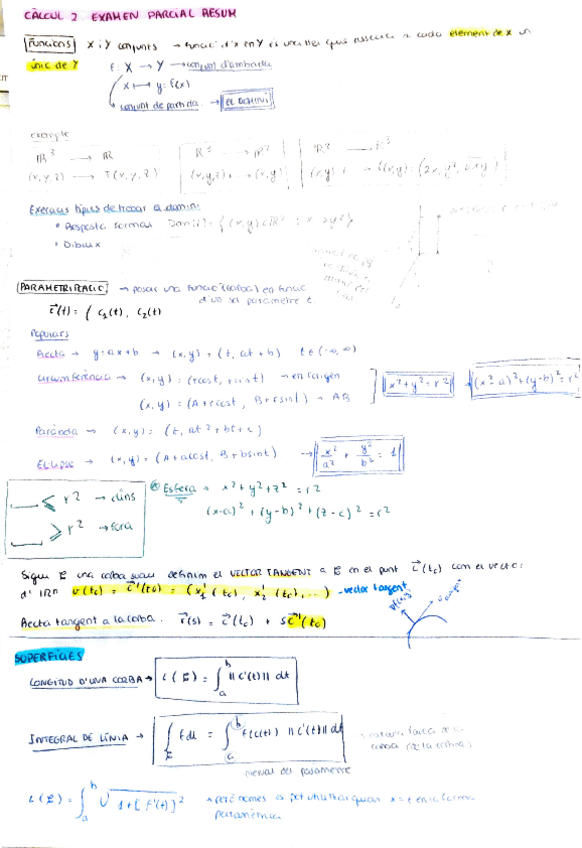 CÀLCUL 2 EXAMEN PARCIAL RESUM
Funcions X i Y conjunts → funció d'X en Y és una llei que associa a cada element de X un
únic de Y f: X → Y → conjunt d'arribada
X ↦ y = f(x)
conjunt de partida → EL DOMINI
exemple
ℝ³ → ℝ ℝ³ → ℝ² ℝ² → ℝ³
(x, y, z) → T(x, y, z) (x, y, z) → (x, y) (x, y) → f(x, y) = (2x, y², √xy)
Exercicis típics de trobar el domini:
• Resposta formal
• Dibuix
PARAMETRITZACIÓ → posar una funció (corba) en funció
d'un sol paràmetre t.
c⃗(t) = (c₁(t), c₂(t)
Populars
Recta → y = ax + b → (x, y) = (t, at + b) t ∈ (-∞, ∞)
Circumferència → (x, y) = (r cost, r sint) → en l'origen x² + y² = r²
(x, y) = (A + r cost, B + r sint) → AB
Paràbola → (x, y) = (t, at² + bt + c)
El·lipse → (x, y) = (A + a cost, B + b sint) → x²/a² + y²/b² = 1
Esfera → x² + y² + z² = r²
(x-a)² + (y-b)² + (z-c)² = r²
≤ r² → dins
≥ r² → fora
Sigui C una corba suau definim el VECTOR TANGENT a C en el punt c⃗(t₀) com el vector
d' ℝⁿ v(t₀) = c⃗'(t₀) = (x₁'(t₀), x₂'(t₀), ...) → vector tangent
Recta tangent a la corba. r⃗(s) = c⃗(t₀) + s c⃗'(t₀)
SUPERFÍCIES
LONGITUD D'UNA CORBA → L(C) = ∫ₐᵇ ||c'(t)|| dt
INTEGRAL DE LÍNIA → ∫ f dl = ∫ₐᵇ f(c(t)) ||c'(t)|| dt
interval del paràmetre
L(C) = ∫ₐᵇ √1 + [f'(t)]² → però només es pot utilitzar quan x = t en la forma
paramètrica